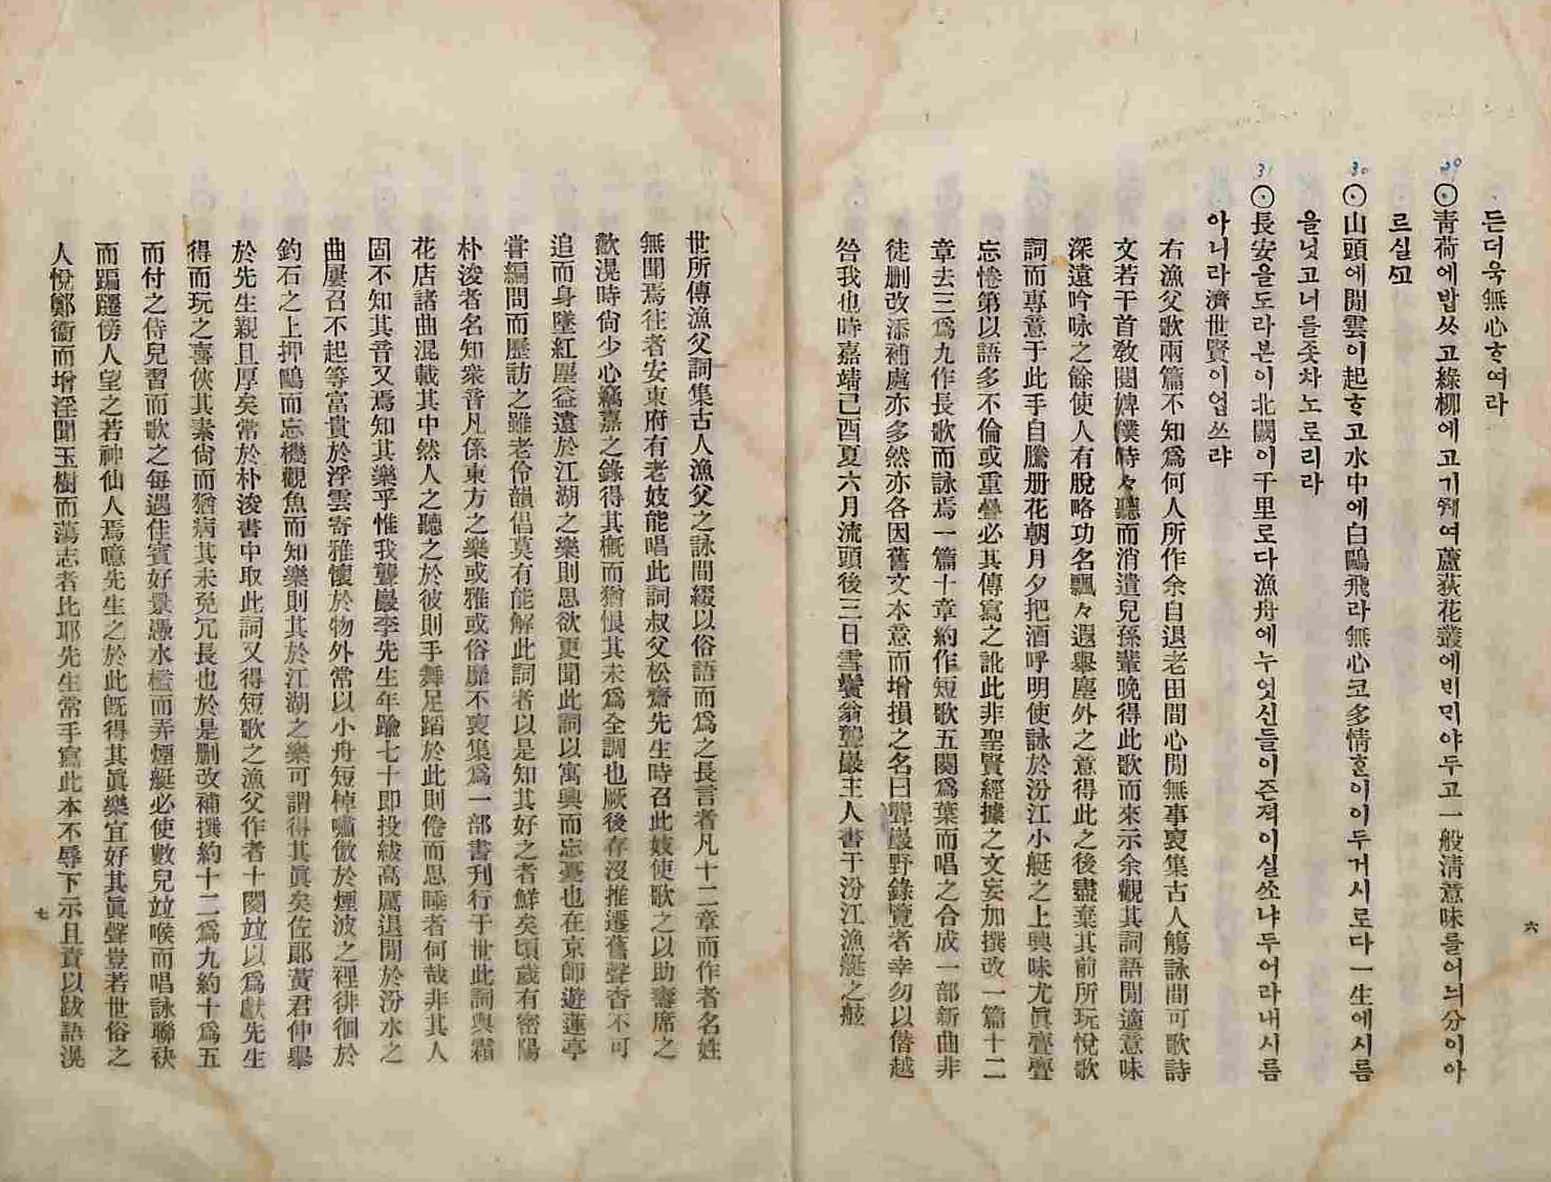 든더욱無心ᄒᆞ여라
29
⊙靑荷에밥ᄡᆞ고綠柳에고기ᄭᅦ여蘆荻花叢에ᄇᆡᄆᆡ야두고一般淸意味를어ᄂᆡ分이아
르실ᄭᅩ
30
⊙山頭에閒雲이起ᄒᆞ고水中에白鷗飛라無心코多情ᄒᆞᆫ이이두거시로다一生에시름
을닛고너를좃차노로리라
31
⊙長安을도라본이北闕이千里로다漁舟에누엇신들이즌젹이실쏘냐두어라내시름
아니라濟世賢이업쓰랴
右漁父歌兩篇不知爲何人所作余自退老田間心閒無事裒集古人觴詠間可歌詩
文若干首敎閱婢僕時々聽而消遣兒孫輩晩得此歌而來示余觀其詞語閒適意味
深遠吟咏之餘使人有脫略功名飄々遐擧塵外之意得此之後盡棄其前所玩悅歌
詞而專意于此手自謄册花朝月夕把酒呼明使詠於汾江小艇之上興味尤眞亹亹
忘惓第以語多不倫或重疊必其傳寫之訛此非聖賢經據之文妄加撰改一篇十二
章去三爲九作長歌而詠焉一篇十章約作短歌五闋爲葉而唱之合成一部新曲非
徒刪改添補處亦多然亦各因舊文本意而增損之名曰聾巖野錄覽者幸勿以僭越
咎我也時嘉靖己酉夏六月流頭後三日雪鬢翁聾巖主人書于汾江漁艇之舷
六
世所傳漁父詞集古人漁父之詠間綴以俗語而爲之長言者凡十二章而作者名姓
無聞焉往者安東府有老妓能唱此詞叔父松齋先生時召此妓使歌之以助壽席之
歡滉時尙少心竊嘉之錄得其槪而猶恨其未爲全調也厥後存沒推遷舊聲杳不可
追而身墜紅塵益遠於江湖之樂則思欲更聞此詞以寓興而忘憂也在京師遊蓮亭
嘗編問而歷訪之雖老伶韻倡莫有能解此詞者以是知其好之者鮮矣頃歲有密陽
朴浚者名知衆音凡係東方之樂或雅或俗靡不裒集爲一部書刊行于世此詞與霜
花店諸曲混載其中然人之聽之於彼則手舞足蹈於此則倦而思睡者何哉非其人
固不知其音又焉知其樂乎惟我聾巖李先生年踰七十卽投紱高厲退閒於汾水之
曲屢召不起等富貴於浮雲寄雅懷於物外常以小舟短棹嘯傲於煙波之裡徘徊於
釣石之上押鷗而忘機觀魚而知樂則其於江湖之樂可謂得其眞矣佐郞黃君仲擧
於先生親且厚矣常於朴浚書中取此詞又得短歌之漁父作者十闋竝以爲獻先生
得而玩之喜俠其素尙而猶病其未免冗長也於是刪改補撰約十二爲九約十爲五
而付之侍兒習而歌之每遇佳賓好景憑水檻而弄煙艇必使數兒竝喉而唱詠聯袂
而蹁躚傍人望之若神仙人焉噫先生之於此旣得其眞樂宜好其眞聲豈若世俗之
人悅鄭衞而增淫聞玉樹而蕩志者比耶先生常手寫此本不辱下示且責以跋語滉
七